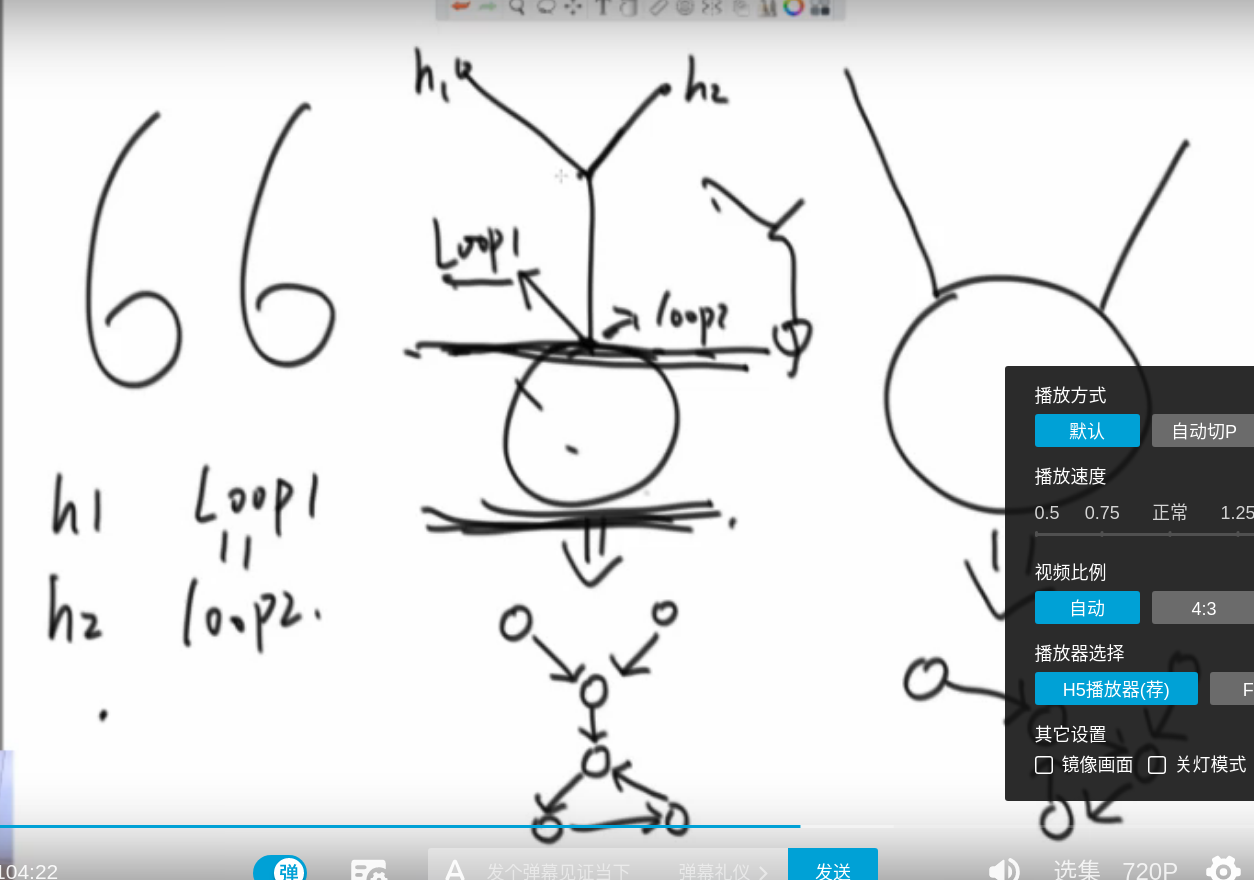 T
h1
h2
66
Loop1
loop2
h1 Loop1
h2 loop2.
播放方式
默认 自动切P
播放速度
0.5 0.75 正常 1.25
视频比例
自动 4:3
播放器选择
H5播放器(荐) F
其它设置
镜像画面 关灯模式
104:22 弹 A 发个弹幕见证当下 弹幕礼仪 > 发送 选集 720P